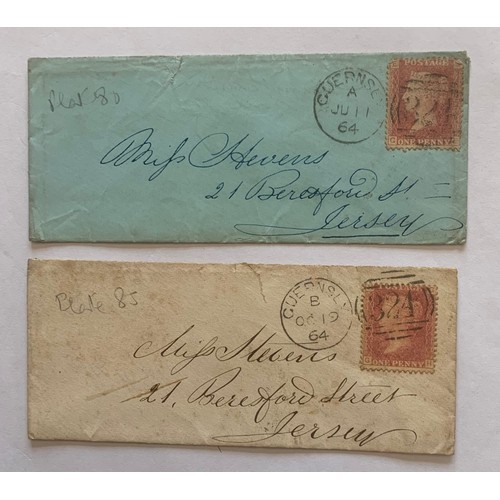 Plate 80
GUERNSEY
A
JU 11
64
POSTAGE
324
ONE PENNY
Miss Stevens
21 Beresford St
Jersey
Plate 85
GUERNSEY
B
OC 19
64
324
ONE PENNY
Miss Stevens
21, Beresford Street
Jersey